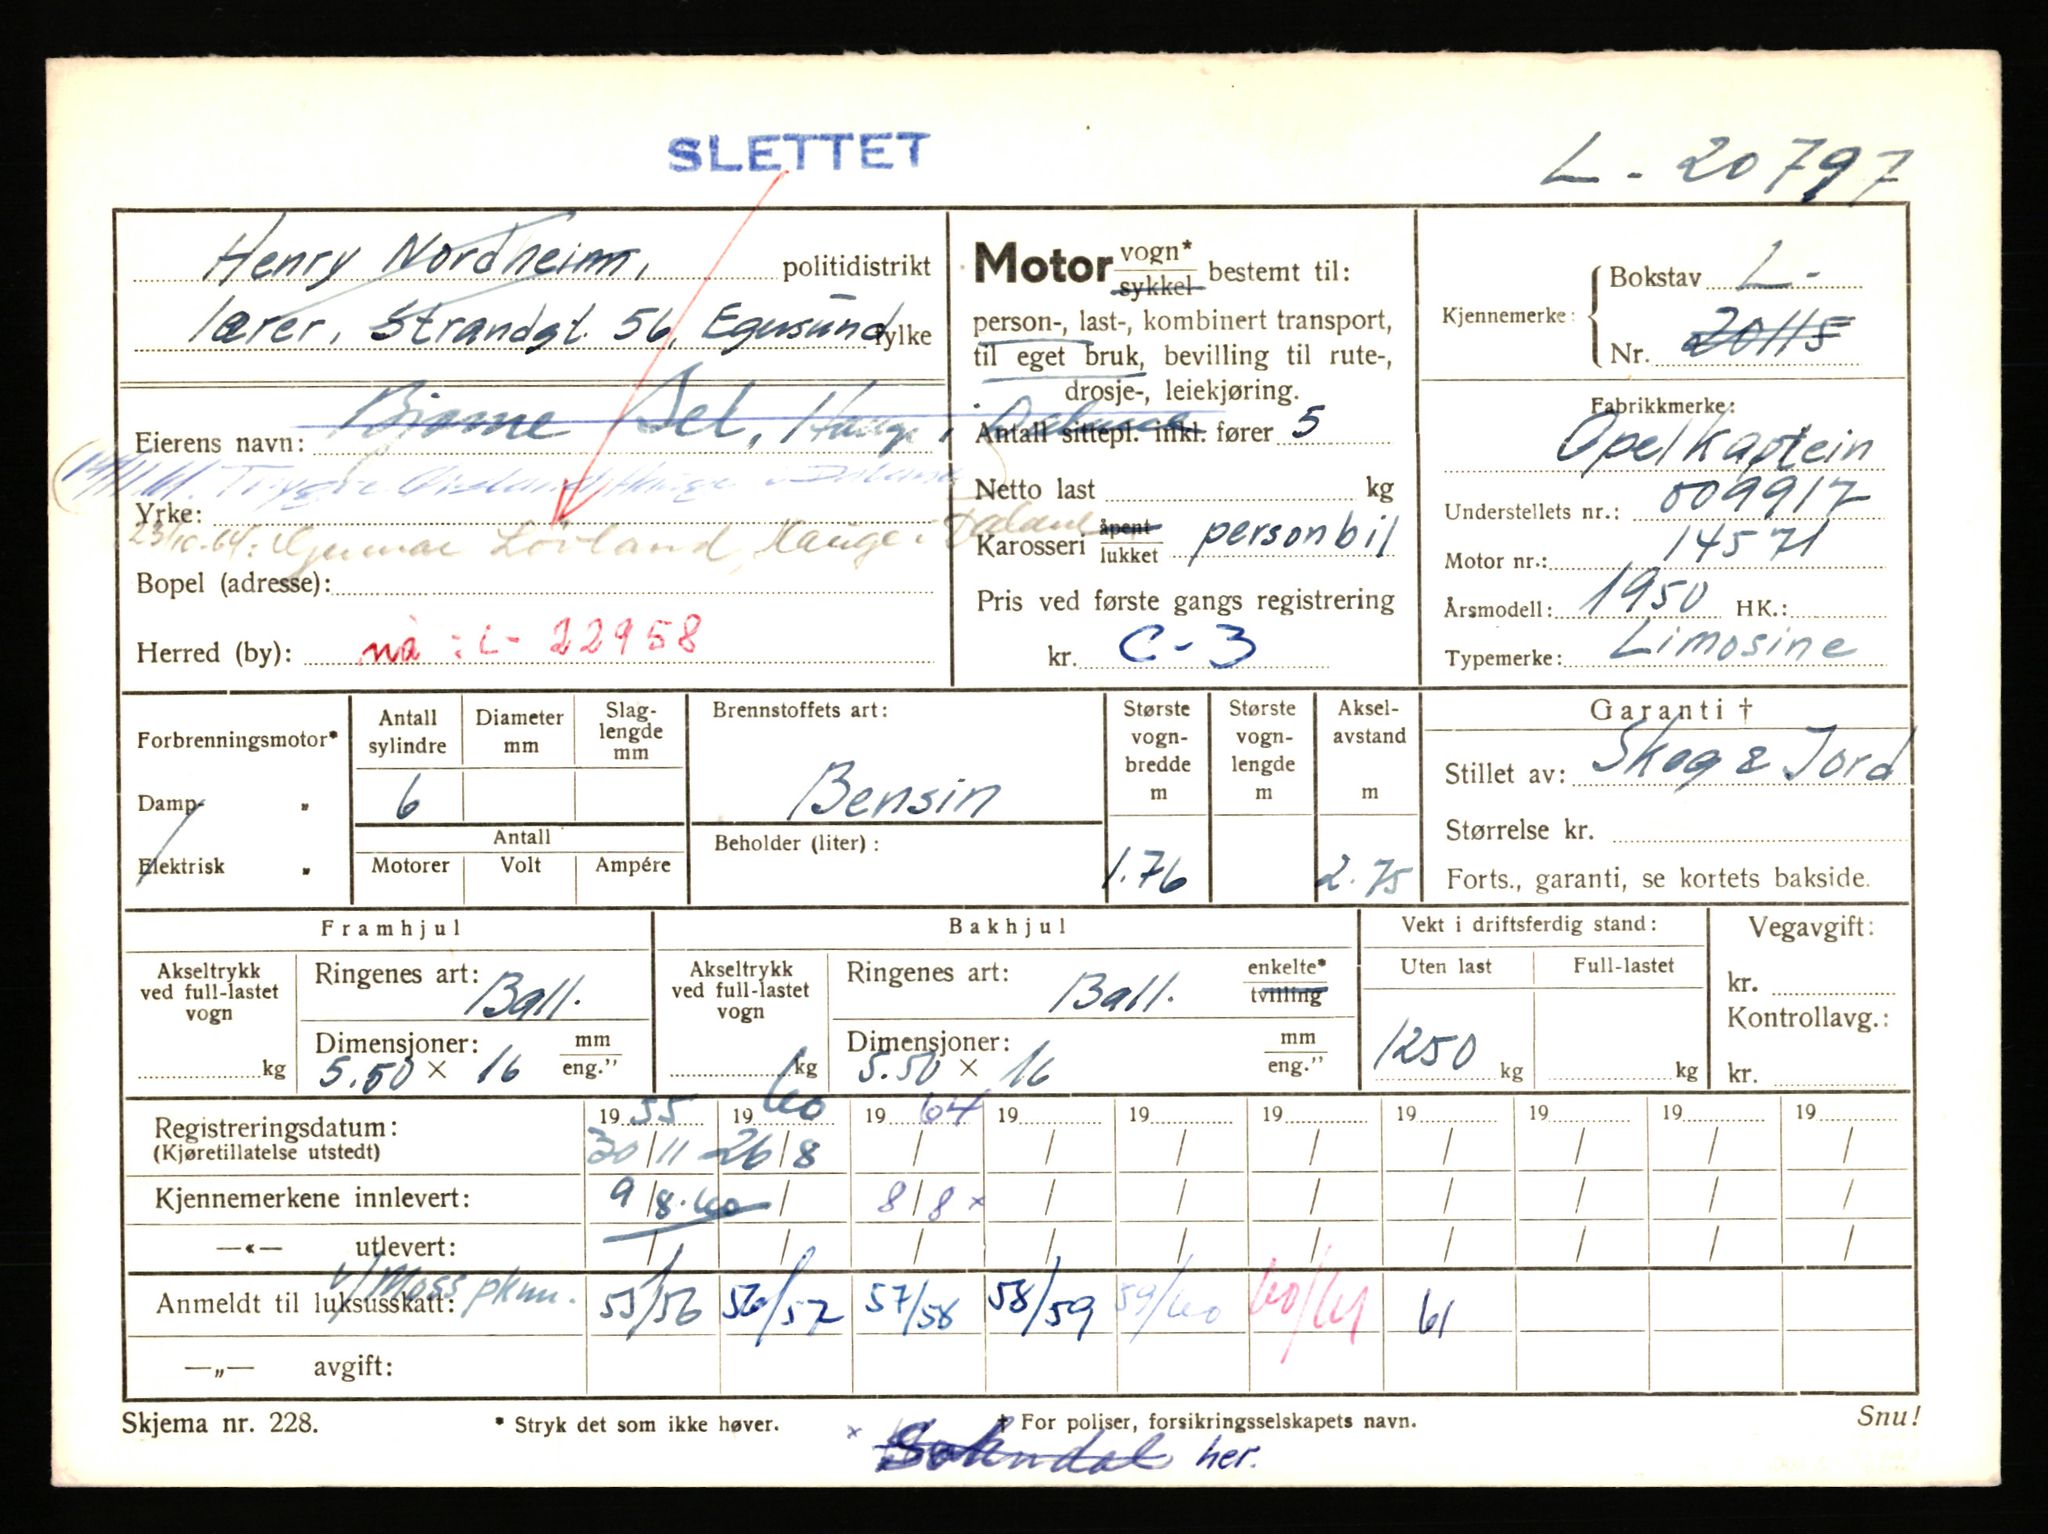 SLETTET
L - 20797
Henry Nordheim, politidistrikt
lærer, Strandgt. 56, Egersund fylke
Eierens navn: Bjarne Sel, Hauge i Dalane
Trygve Hauge i Dalane
Yrke:
23/10-64: Gunnar Løvland, Hauge i Dalane
Bopel (adresse):
Herred (by): nå : L - 22958
Motor vogn* sykkel bestemt til:
person-, last-, kombinert transport,
til eget bruk, bevilling til rute-,
drosje-, leiekjøring.
Antall sittepl. inkl. fører 5
Netto last kg
Karosseri åpent lukket personbil
Pris ved første gangs registrering
kr. C - 3
Kjennemerke: Bokstav L -
Nr. 20115
Fabrikkmerke:
Opel Kaptein
Understellets nr.: 009917
Motor nr.: 14571
Årsmodell: 1950 HK.:
Typemerke: Limosine
Forbrenningsmotor*
Damp- „
Elektrisk „
Antall sylindre Diameter mm Slag-lengde mm
6
Antall
Motorer Volt Ampére
Brennstoffets art:
Bensin
Beholder (liter) :
Største vogn-bredde m Største vogn-lengde m Aksel-avstand m
1.76 2.75
Garanti †
Stillet av: Skog & Jord
Størrelse kr.
Forts., garanti, se kortets bakside.
Framhjul
Akseltrykk ved full-lastet vogn
kg
Ringenes art: Ball.
Dimensjoner: mm eng."
5.50 × 16
Bakhjul
Akseltrykk ved full-lastet vogn
kg
Ringenes art: Ball. enkelte* tvilling
Dimensjoner: mm eng."
5.50 × 16
Vekt i driftsferdig stand:
Uten last Full-lastet
1250 kg kg
Vegavgift:
kr.
Kontrollavg.:
kr.
19 55 19 60 19 64 19 19 19 19 19 19 19
Registreringsdatum: 30/11 26/8 / / / / / / / /
(Kjøretillatelse utstedt)
Kjennemerkene innlevert: 9/8.60 / 8/8 x / / / / / / /
—«— utlevert: / / / / / / / / / /
v/Moss pkm.
Anmeldt til luksusskatt: 55/56 56/57 57/58 58/59 59/60 60/61 61
—„— avgift:
Skjema nr. 228. * Stryk det som ikke høver. † For poliser, forsikringsselskapets navn. Snu!
x Sokndal her.